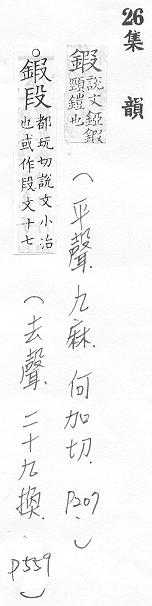 26
集韻
鍜 說文錏鍜頸鎧也 (平聲.九麻.何加切.P209.)
。鍛段 都玩切說文小冶也或作段文十七 (去聲.二十九換.P559)